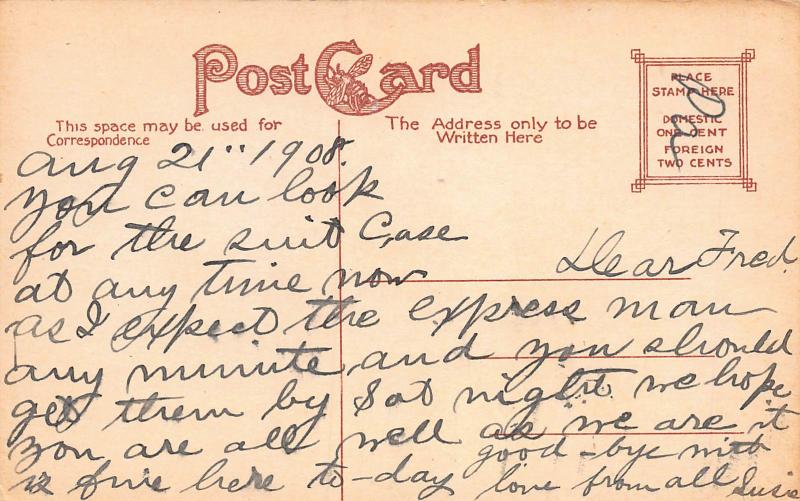 Post Card
This space may be used for
Correspondence
The Address only to be
Written Here
PLACE
STAMP HERE
DOMESTIC
ONE CENT
FOREIGN
TWO CENTS
Aug 21" 1908.
Dear Fred.
you can look
for the suit Case
at any time now
as I expect the express man
any minute and you should
get them by Sat night we hope
you are all well as we are it
is fine here to-day
good-bye with
love from all Susie